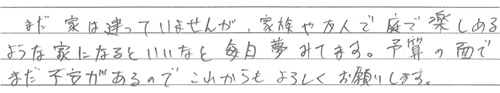 まだ家は建っていませんが、家族や友人で庭で楽しめる
ような家になるといいなと毎日夢みてます。予算の面で
まだ不安があるのでこれからもよろしくお願いします。